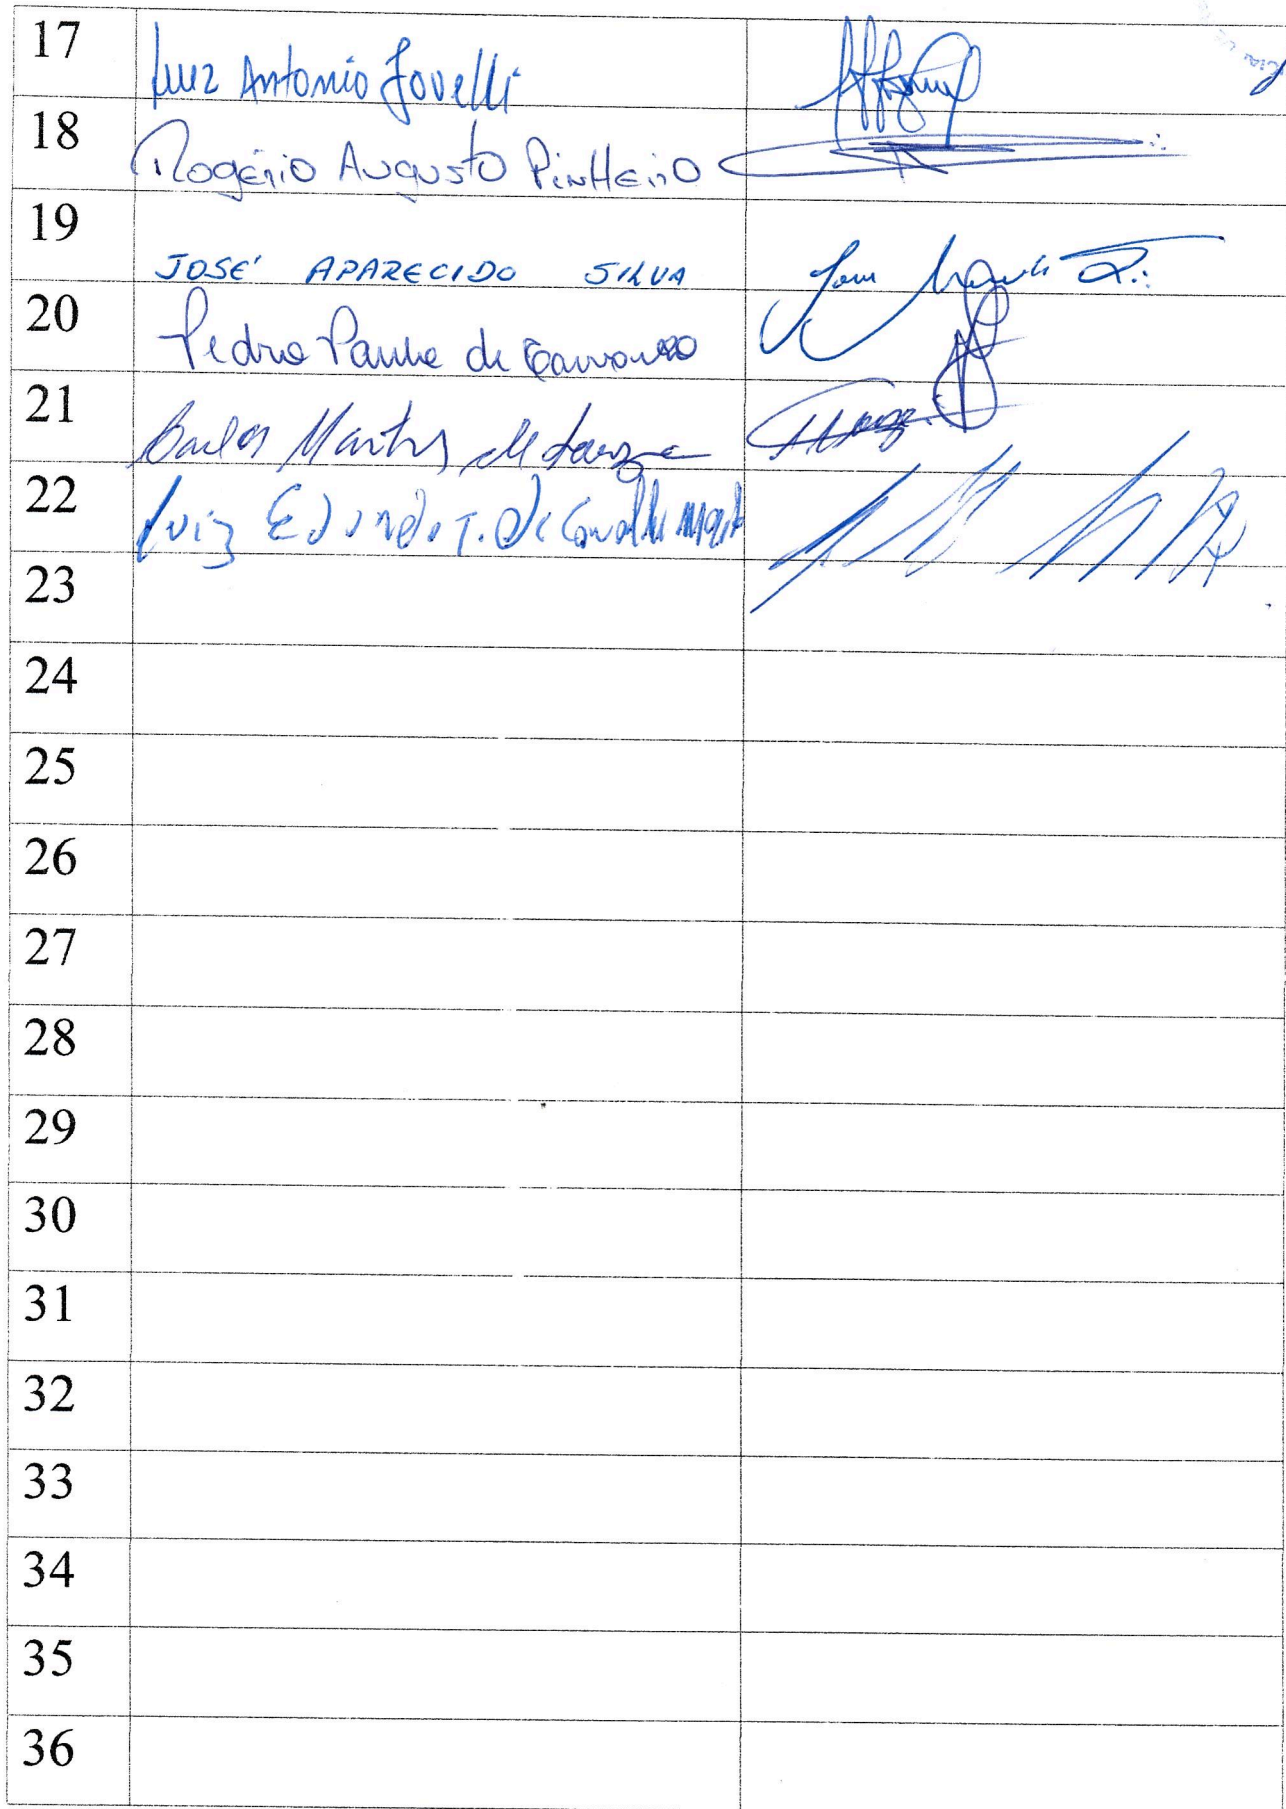 17 Luiz Antonio Jovelli
18 Rogério Augusto PinHeiro
19 JOSÉ APARECIDO SILVA
20 Pedro Paulo de
21 Carlos Martins
22 Luiz Eduardo T. De Carvalho
23
24
25
26
27
28
29
30
31
32
33
34
35
36